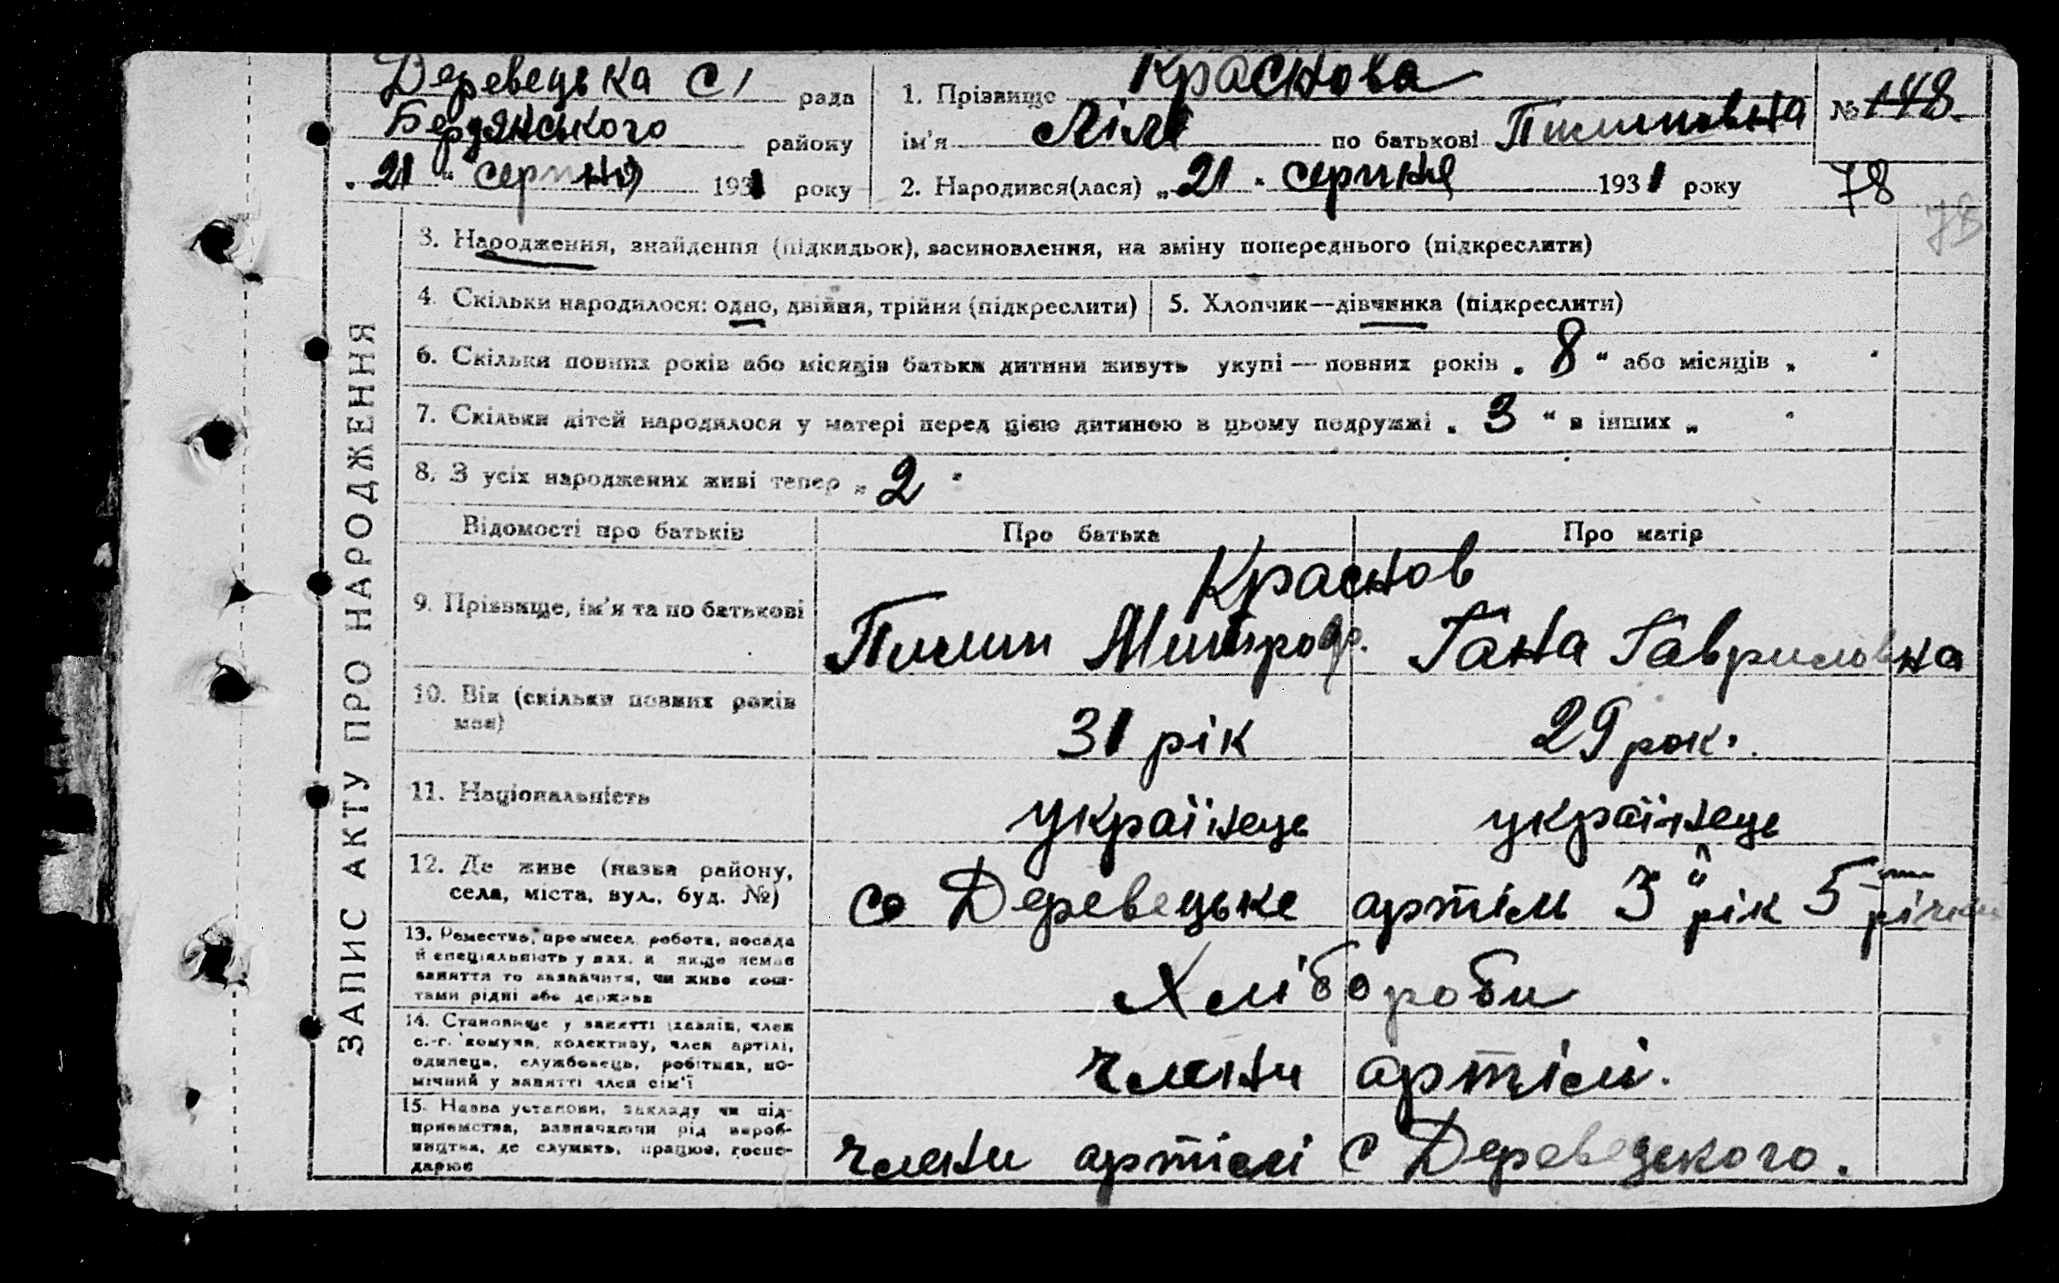 Деревецька с/ рада
Бердянського району
„21" серпня 1931 року
1. Прізвище Краснова
ім'я Ліля по батькові Пилиповна
2. Народився(лася) „21" серпня 1931 року
№ 148
78
78
ЗАПИС АКТУ ПРО НАРОДЖЕННЯ
3. Народження, знайдення (підкидьок), засиновлення, на зміну попереднього (підкреслити)
4. Скільки народилося: одно, двійня, трійня (підкреслити)
5. Хлопчик—дівчинка (підкреслити)
6. Скільки повних років або місяців батьки дитини живуть укупі — повних років „8" або місяців „ "
7. Скільки дітей народилося у матері перед цією дитиною в цьому подружжі „3" в інших „ "
8. З усіх народжених живі тепер „2"
Відомості про батьків Про батька Про матір
Краснов
9. Прізвище, ім'я та по батькові Пилип Митроф. Гана Гавриловна
10. Вік (скільки повних років
має) 31 рік 29 рок.
11. Національність українець українець
12. Де живе (назва району,
села, міста, вул., буд. №) с Деревецьке артіль 3й рік 5 річки
13. Ремество, промисел, робота, посада
й спеціяльність у них, а якщо немає
заняття то зазначити, чи живе кош-
тами рідні або держави
Хлібороби
14. Становище у занятті (хазяїн, член
с.-г. комуни, колективу, член артілі,
одинець, службовець, робітник, по-
мічний у занятті член сім'ї
члени артілі.
15. Назва установи, закладу чи під-
приємства, зазначаючи рід вироб-
ництва, де служить, працює, госпо-
дарює
члени артілі с Деревецького.